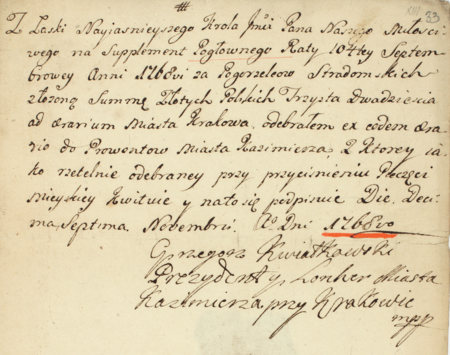 33
Z Łaski Nayjasnieyszego Krola Jmći Pana Naszego Miłości
wego na Supplement Pogłownego Raty 104tey Septem
browey Anni 1768vi za Pogorzelcow Stradomskich
złożoną Summę Złotych Polskich Trzysta Dwadziescia
ad Ærarium Miasta Krakowa, odebrałem ex eodem Æra
rio do Prowentow Miasta Kazimierza, Z Ktorey ia
ko rzetelnie odebraney przy przycisnieniu Pieczęci
Mieyskiey Kwituię y na to się podpisuię Die Deci
ma Septima Novembris. Ao Dni 1768vo
Grzegorz Kwiatkowski
Prezydent y Lonher Miasta
Kazimierza przy Krakowie
mpp